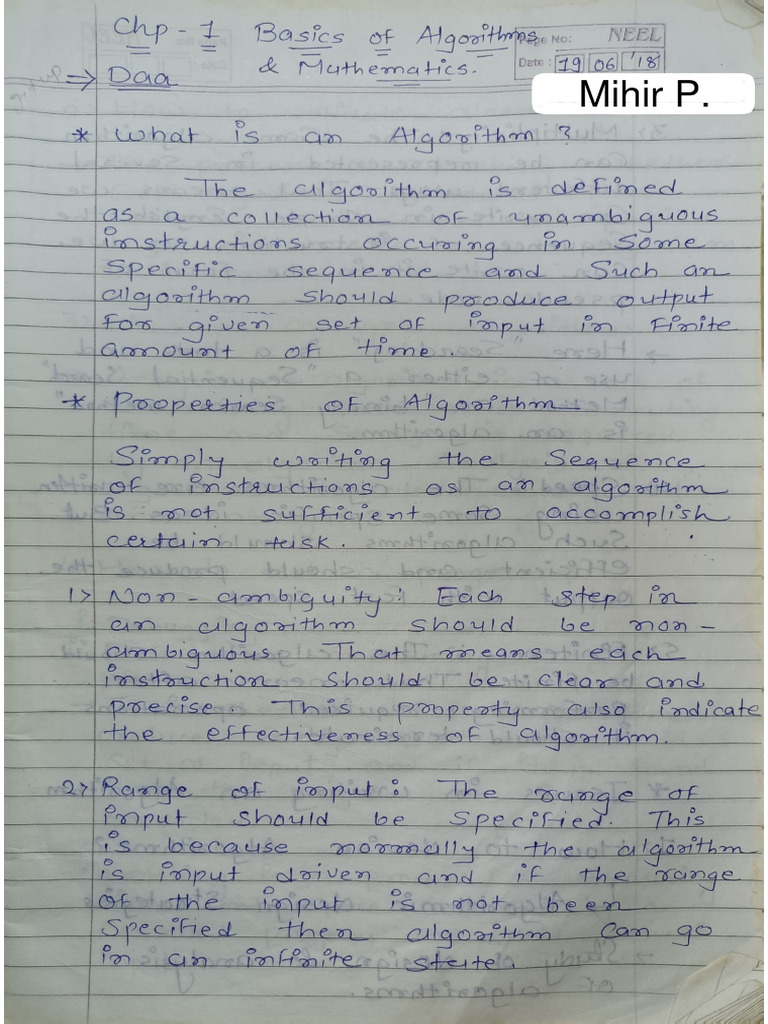 Chp - 1 Basics of Algorithms
& Mathematics.
Page No: NEEL
Date: 19 06 '18
Mihir P.
⇒ Daa
* What is an Algorithm?
The algorithm is defined
as a collection of unambiguous
instructions occuring in some
specific sequence and such an
algorithm should produce output
for given set of input in finite
amount of time.
* Properties of Algorithm
Simply writing the sequence
of instructions as an algorithm
is not sufficient to accomplish
certain task.
1> Non-ambiguity: Each step in
an algorithm should be non-
ambiguous. That means each
instruction should be clear and
precise. This property also indicate
the effectiveness of algorithm.
2> Range of input: The range of
input should be specified. This
is because normally the algorithm
is input driven and if the range
of the input is not been
specified then algorithm can go
in an infinite state.